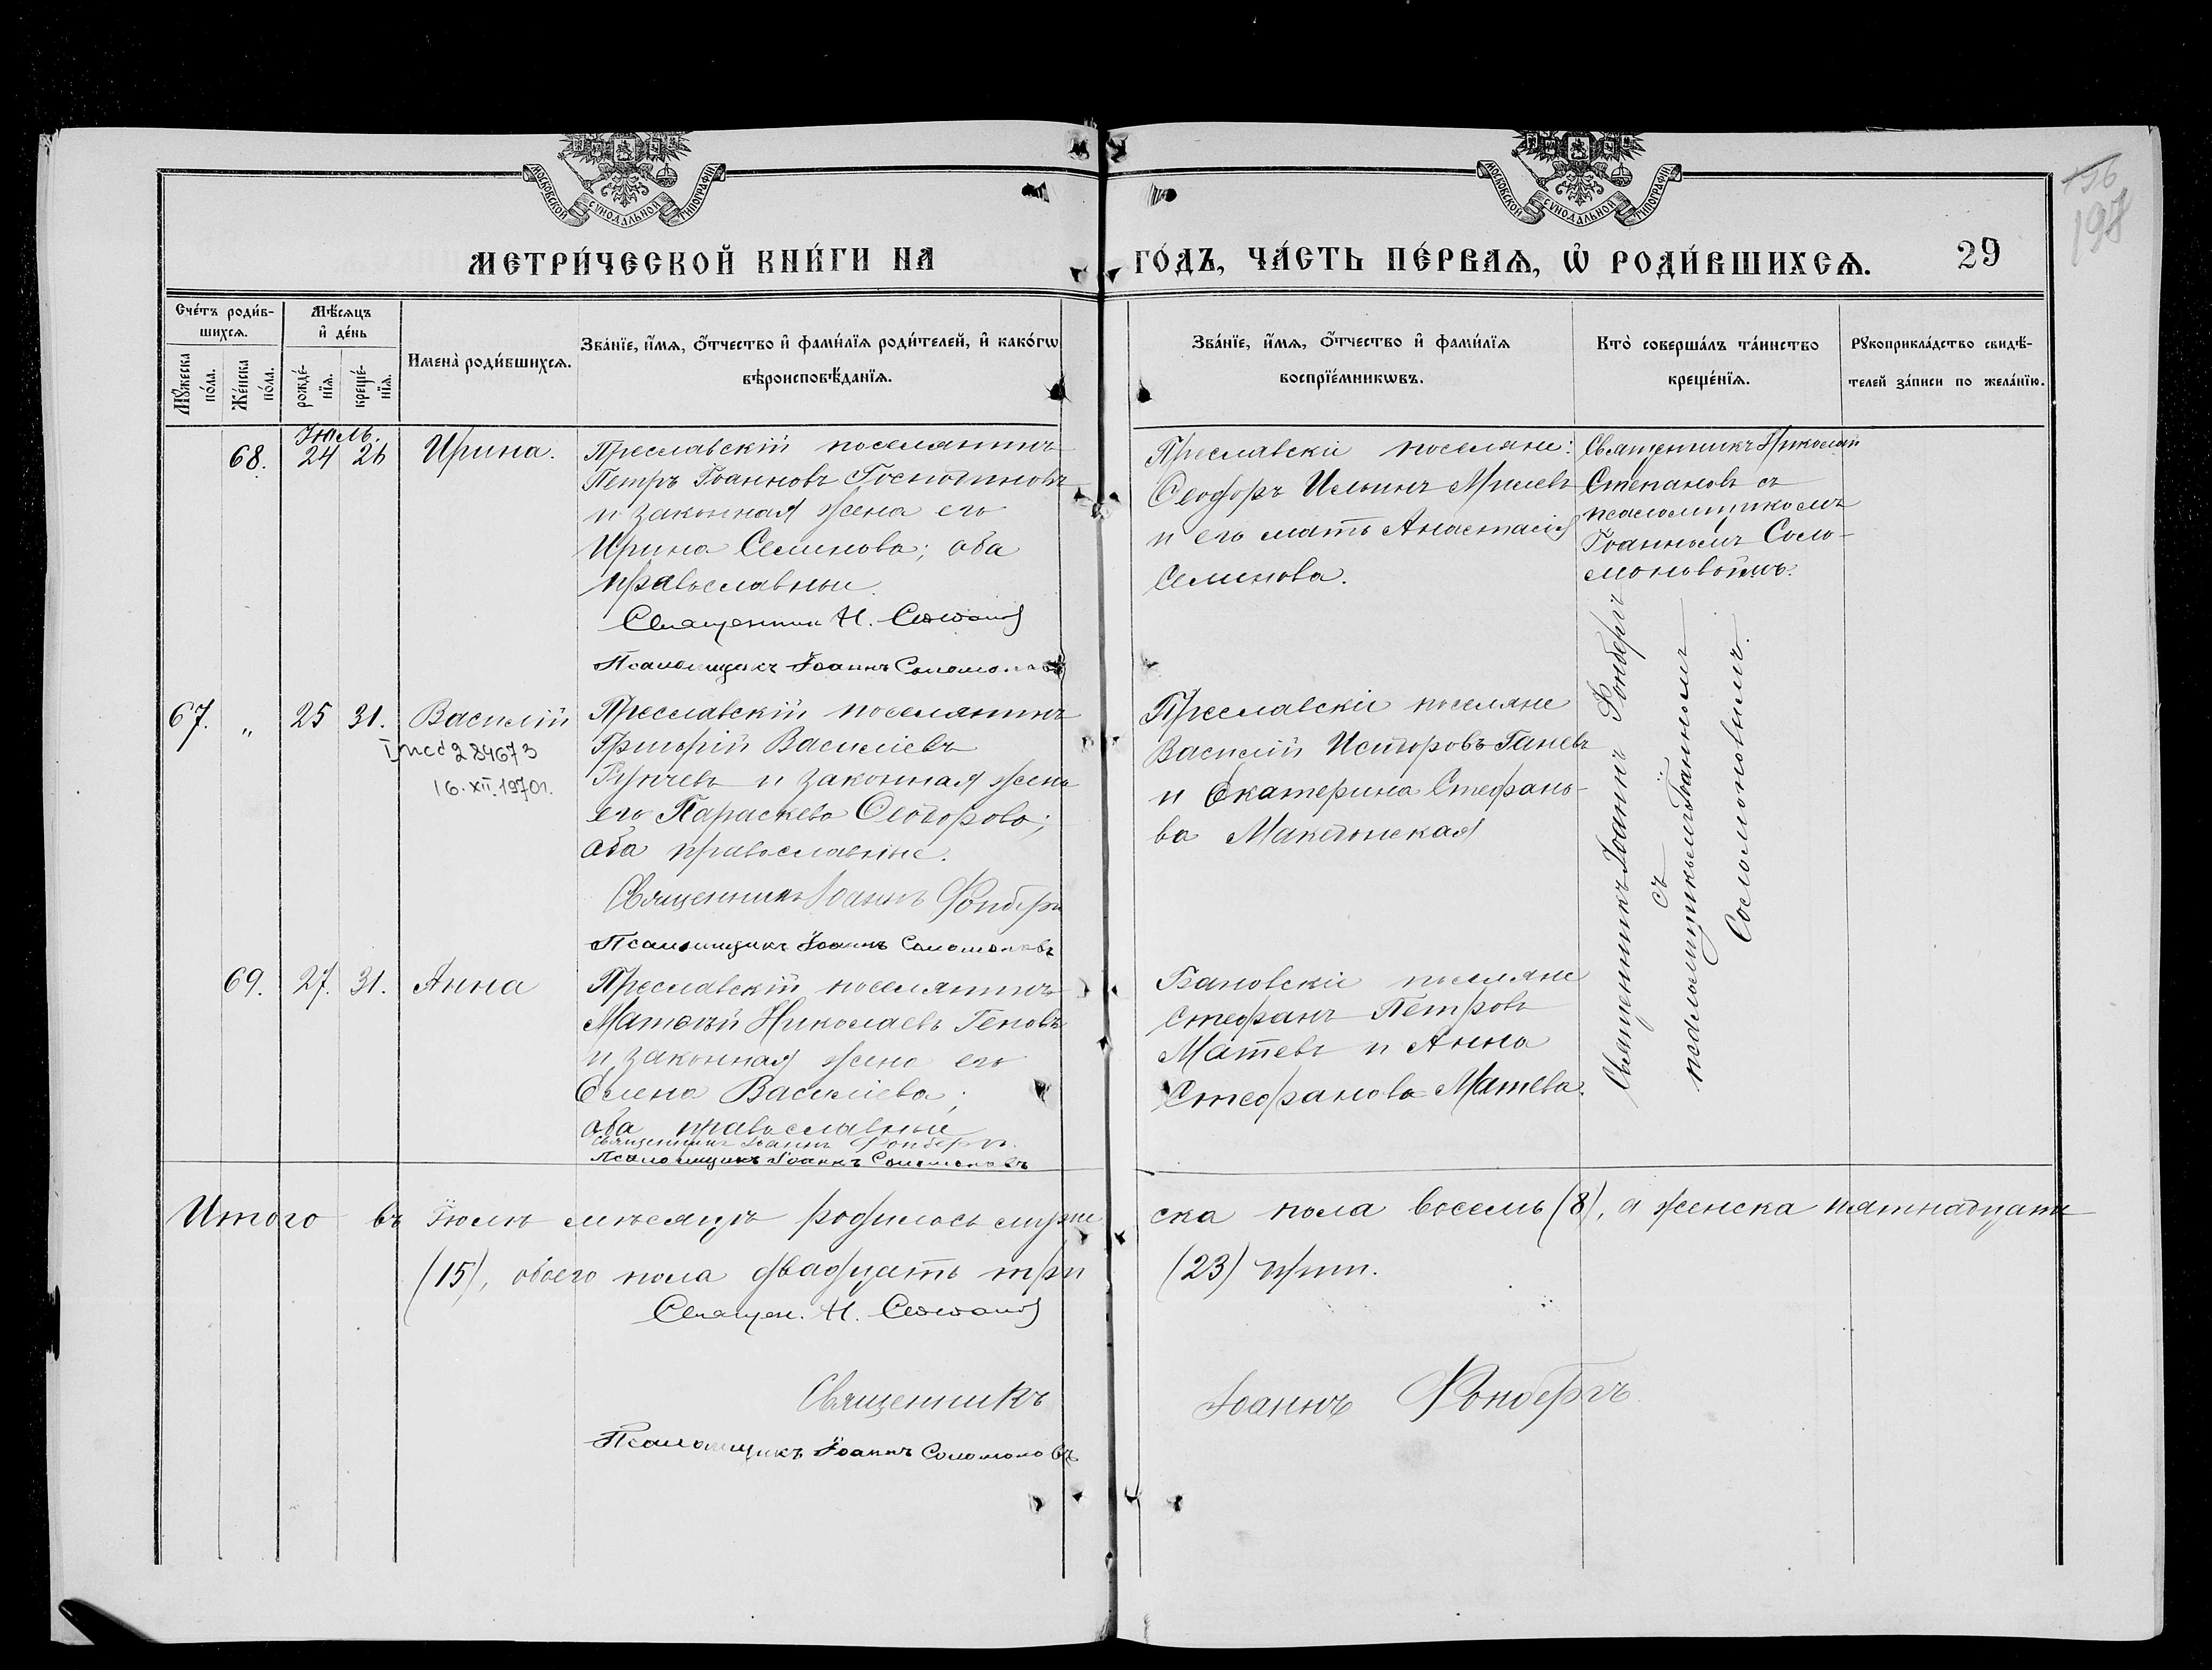 МОСКОВСКОЙ СУНОДАЛЬНОЙ ТИПОГРАФІИ
МОСКОВСКОЙ СУНОДАЛЬНОЙ ТИПОГРАФІИ
156
198
МЕТРИ́ЧЕСКОЙ КНИ́ГИ НА
ГО́ДЪ, ЧА́СТЬ ПЕ́РВАѦ, Ѡ РОДИ́ВШИХСѦ.
29
Сче́тъ роди́в-
шихсѧ.
Мѣ́сѧцъ
и де́нь
Мꙋ́жеска
по́ла.
Же́нска
по́ла.
рожде́-
нїѧ.
креще́-
нїѧ.
Имена̀ роди́вшихсѧ.
Зва́нїе, и́мѧ, ѻ́тчество и фами́лїѧ роди́телей, и како́гѡ
вѣроисповѣ́данїѧ.
Зва́нїе, и́мѧ, ѻ́тчество и фами́лїѧ
воспрїе́мникѡвъ.
Кто̀ соверша́лъ та́инство
креще́нїѧ.
Рꙋкоприкла́дство свидѣ́-
телей за́писи по жела́нїю.
Іюль.
68. 24 26 Ирина.
Преславскій поселянинъ
Петръ Іоанновъ Господиновъ
и законная жена его
Ирина Семенова; оба
православные.
Священник Н. Степанов
Псаломщикъ Іоаннъ Соломоновъ
Преславскіе поселяне:
Ѳеодоръ Ильинъ Милевъ
и его мать Анастасія
Семенова.
Священникъ Николай
Степановъ съ
псаломщикомъ
Іоанномъ Соло-
моновымъ.
67. „ 25 31. Василій
284673
16.XII.1970г.
Преславскій поселянинъ
Григорій Василіевъ
и законная жена
его Параскева Ѳеодорова;
оба православные.
Священникъ Іоаннъ Фонбергъ
Псаломщикъ Іоаннъ Соломоновъ
Преславскіе поселяне
Василій Исидоровъ Ганевъ
и Екатерина Стефано-
ва Македонская
Священникъ Іоаннъ Фонбергъ
съ
псаломщикомъ Іоанномъ
Соломоновымъ.
69. 27. 31. Анна
Преславскій поселянинъ
Матѳей Николаевъ Геновъ
и законная жена его
Елена Василіева;
оба православные
Священникъ Іоаннъ Фонбергъ.
Псаломщикъ Іоаннъ Соломоновъ
Бановскіе поселяне
Стефанъ Петровъ
Матевъ и Анна
Стефанова Матева.
Итого въ Іюлѣ мѣсяцѣ родилось мужеска пола восемь (8), а женска пятнадцать
(15), обоего пола двадцать три (23) душ.
Священ. Н. Степанов
Священникъ Іоаннъ Фонбергъ
Псаломщикъ Іоаннъ Соломоновъ